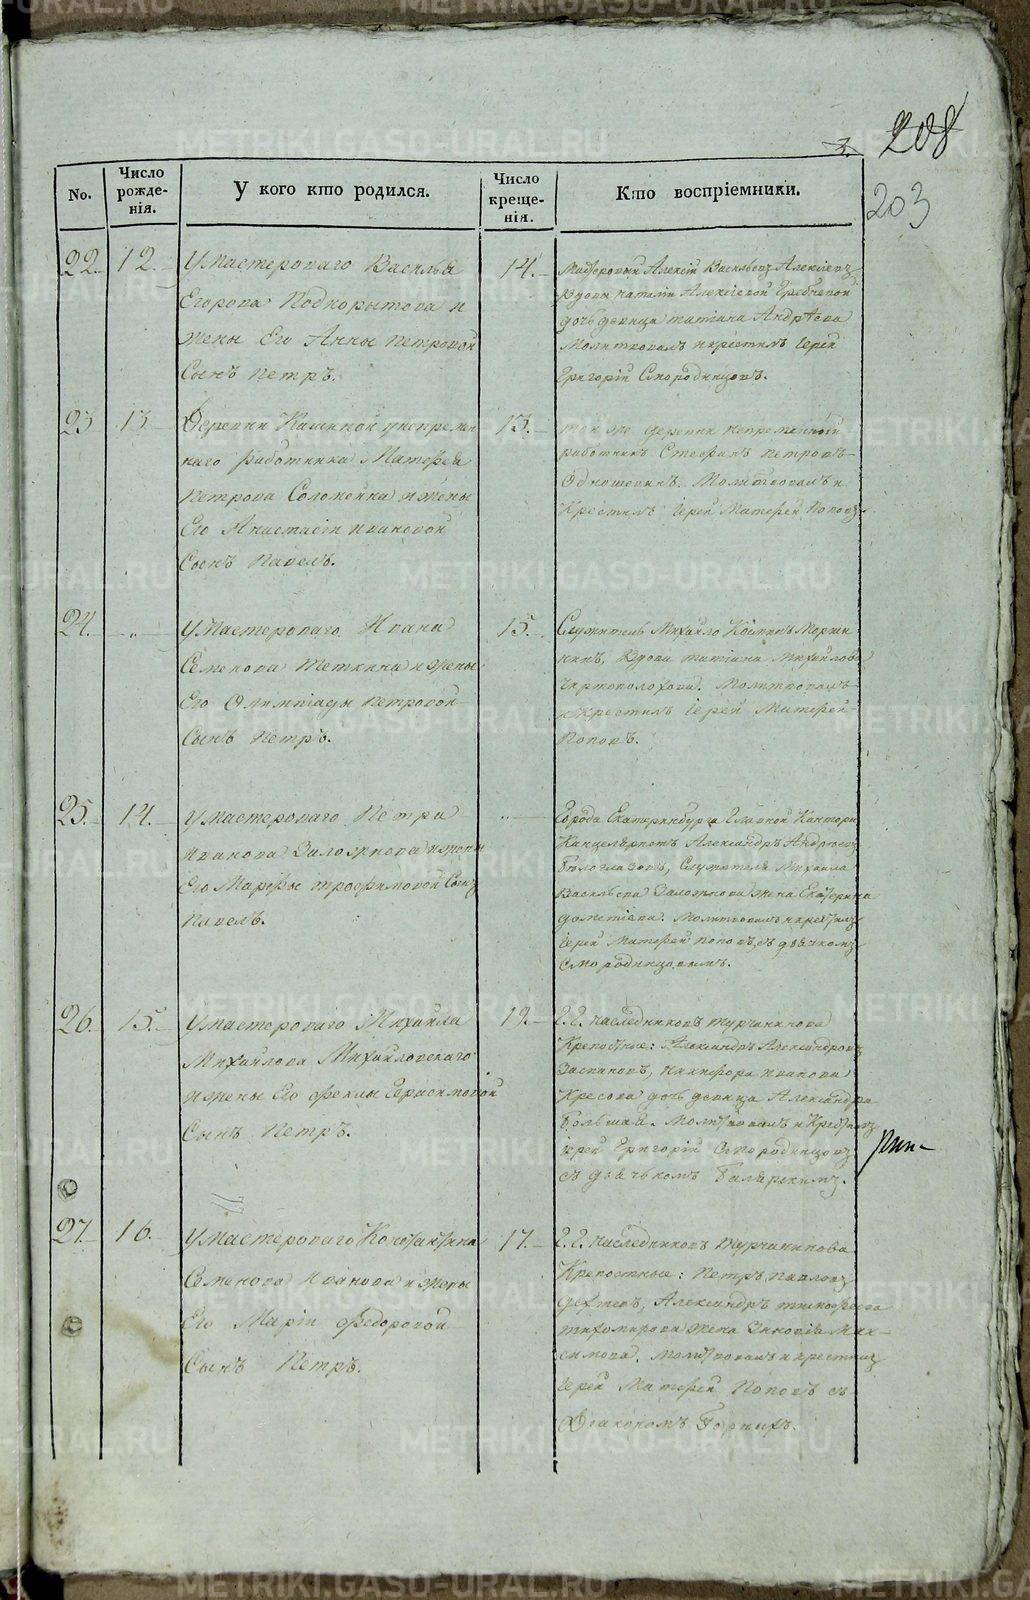 208
203
No.
Число рожде-нія.
У кого кто родился.
Число креще-нія.
Кто воспріемники.
22. 12.
У Мастероваго Василья
Егорова Подкорытова и
жены Его Анны Петровой
Сынъ Петръ.
14.
Мастеровый Алексій Васильевъ Алексіевъ
Вдовы Наталіи Алексіевой Гребневой
дочь девица Татіана Андрѣева
Молитвовалъ и крестилъ Іерей
Григорій Смородинцовъ.
23 13
Деревни Кашиной у непремен
наго работника Матфея
Петрова Соломеина и жены
Его Анастасіи Ивановой
Сынъ Павелъ.
13.
той же деревни непременный
работникъ Стефанъ Петровъ
Одношевинъ. Молитвовалъ и
Крестилъ Іерей Матфей Поповъ
24. „
У Мастероваго Ивана
Семенова Теткина и жены
Его Олимпіады Петровой
Сынъ Петръ.
15.
Служитель Михайло Козминъ Морши
нинъ, Вдова Татіана Михайлова
Чертополохова. Молитвовалъ
и крестилъ Іерей Матфей
Поповъ.
25. 14.
У Мастероваго Петра
Иванова Заложнева и жены
Его Марфы Трофимовой Сынъ
Павелъ.
„
Города Екатеринбурга Главной Канторы
Канцеляристъ Александръ Андрюсовъ
Бѣлоглазовъ, Служителя Михаила
Васильева Заложнова жена Екатерина
Дометіева. Молитвовалъ и крестилъ
Іерей Матфей Поповъ, съ дьячкомъ
Смородинцовымъ.
26. 15.
У Мастероваго Михаила
Михайлова Михайловскаго
и жены Его Феклы Герасимовой
Сынъ Петръ.
19.
Г.Г. Наследниковъ Турчанинова
Крепостные: Александръ Александровъ
Заспановъ, Никифора Иванова
Кресова дочь девица Александра
Большая. Молитвовалъ и Крестилъ
Іерей Григорій Смородинцовъ
съ дьячькомъ Балярскимъ.
27. 16.
У Мастероваго Константина
Семенова Иванова и жены
Его Маріи Федоровой
Сынъ Петръ.
17.
Г.Г. Наследниковъ Турчанинова
Крепостные: Петръ Павловъ
Дегтевъ, Александръ Тимофеева
Тихомирова жена Зиновія Мак-
симова. Молитвовалъ и крестилъ
Іерей Матфей Поповъ съ
Діакономъ Горныхъ.
METRIKI.GASO-URAL.RU